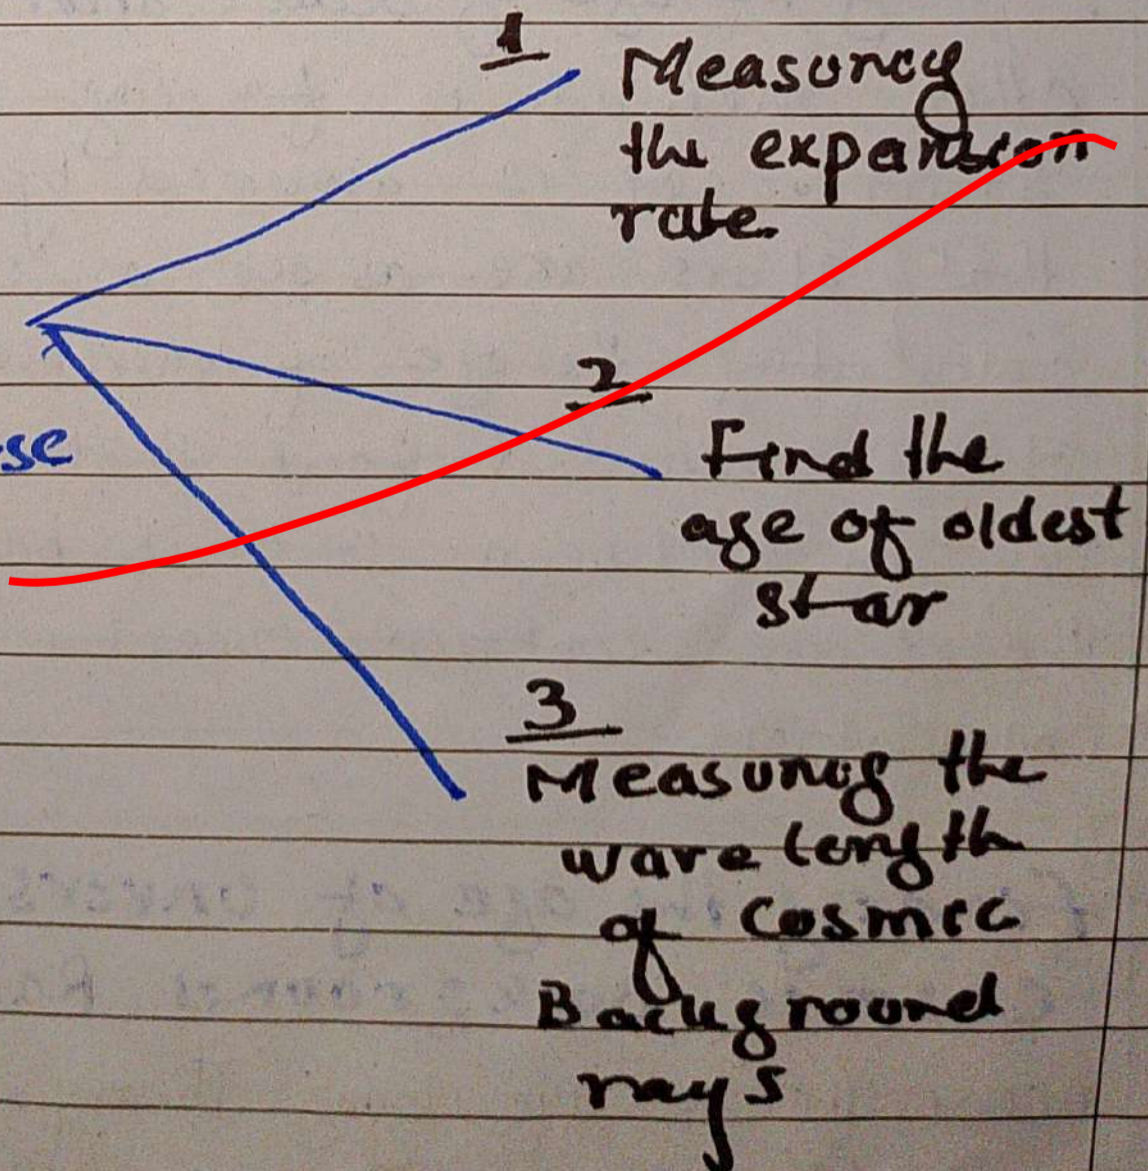 1
Measuring
the expansion
rate.
2
se
Find the
age of oldest
star
3
Measuring the
wave length
of Cosmic
Background
rays